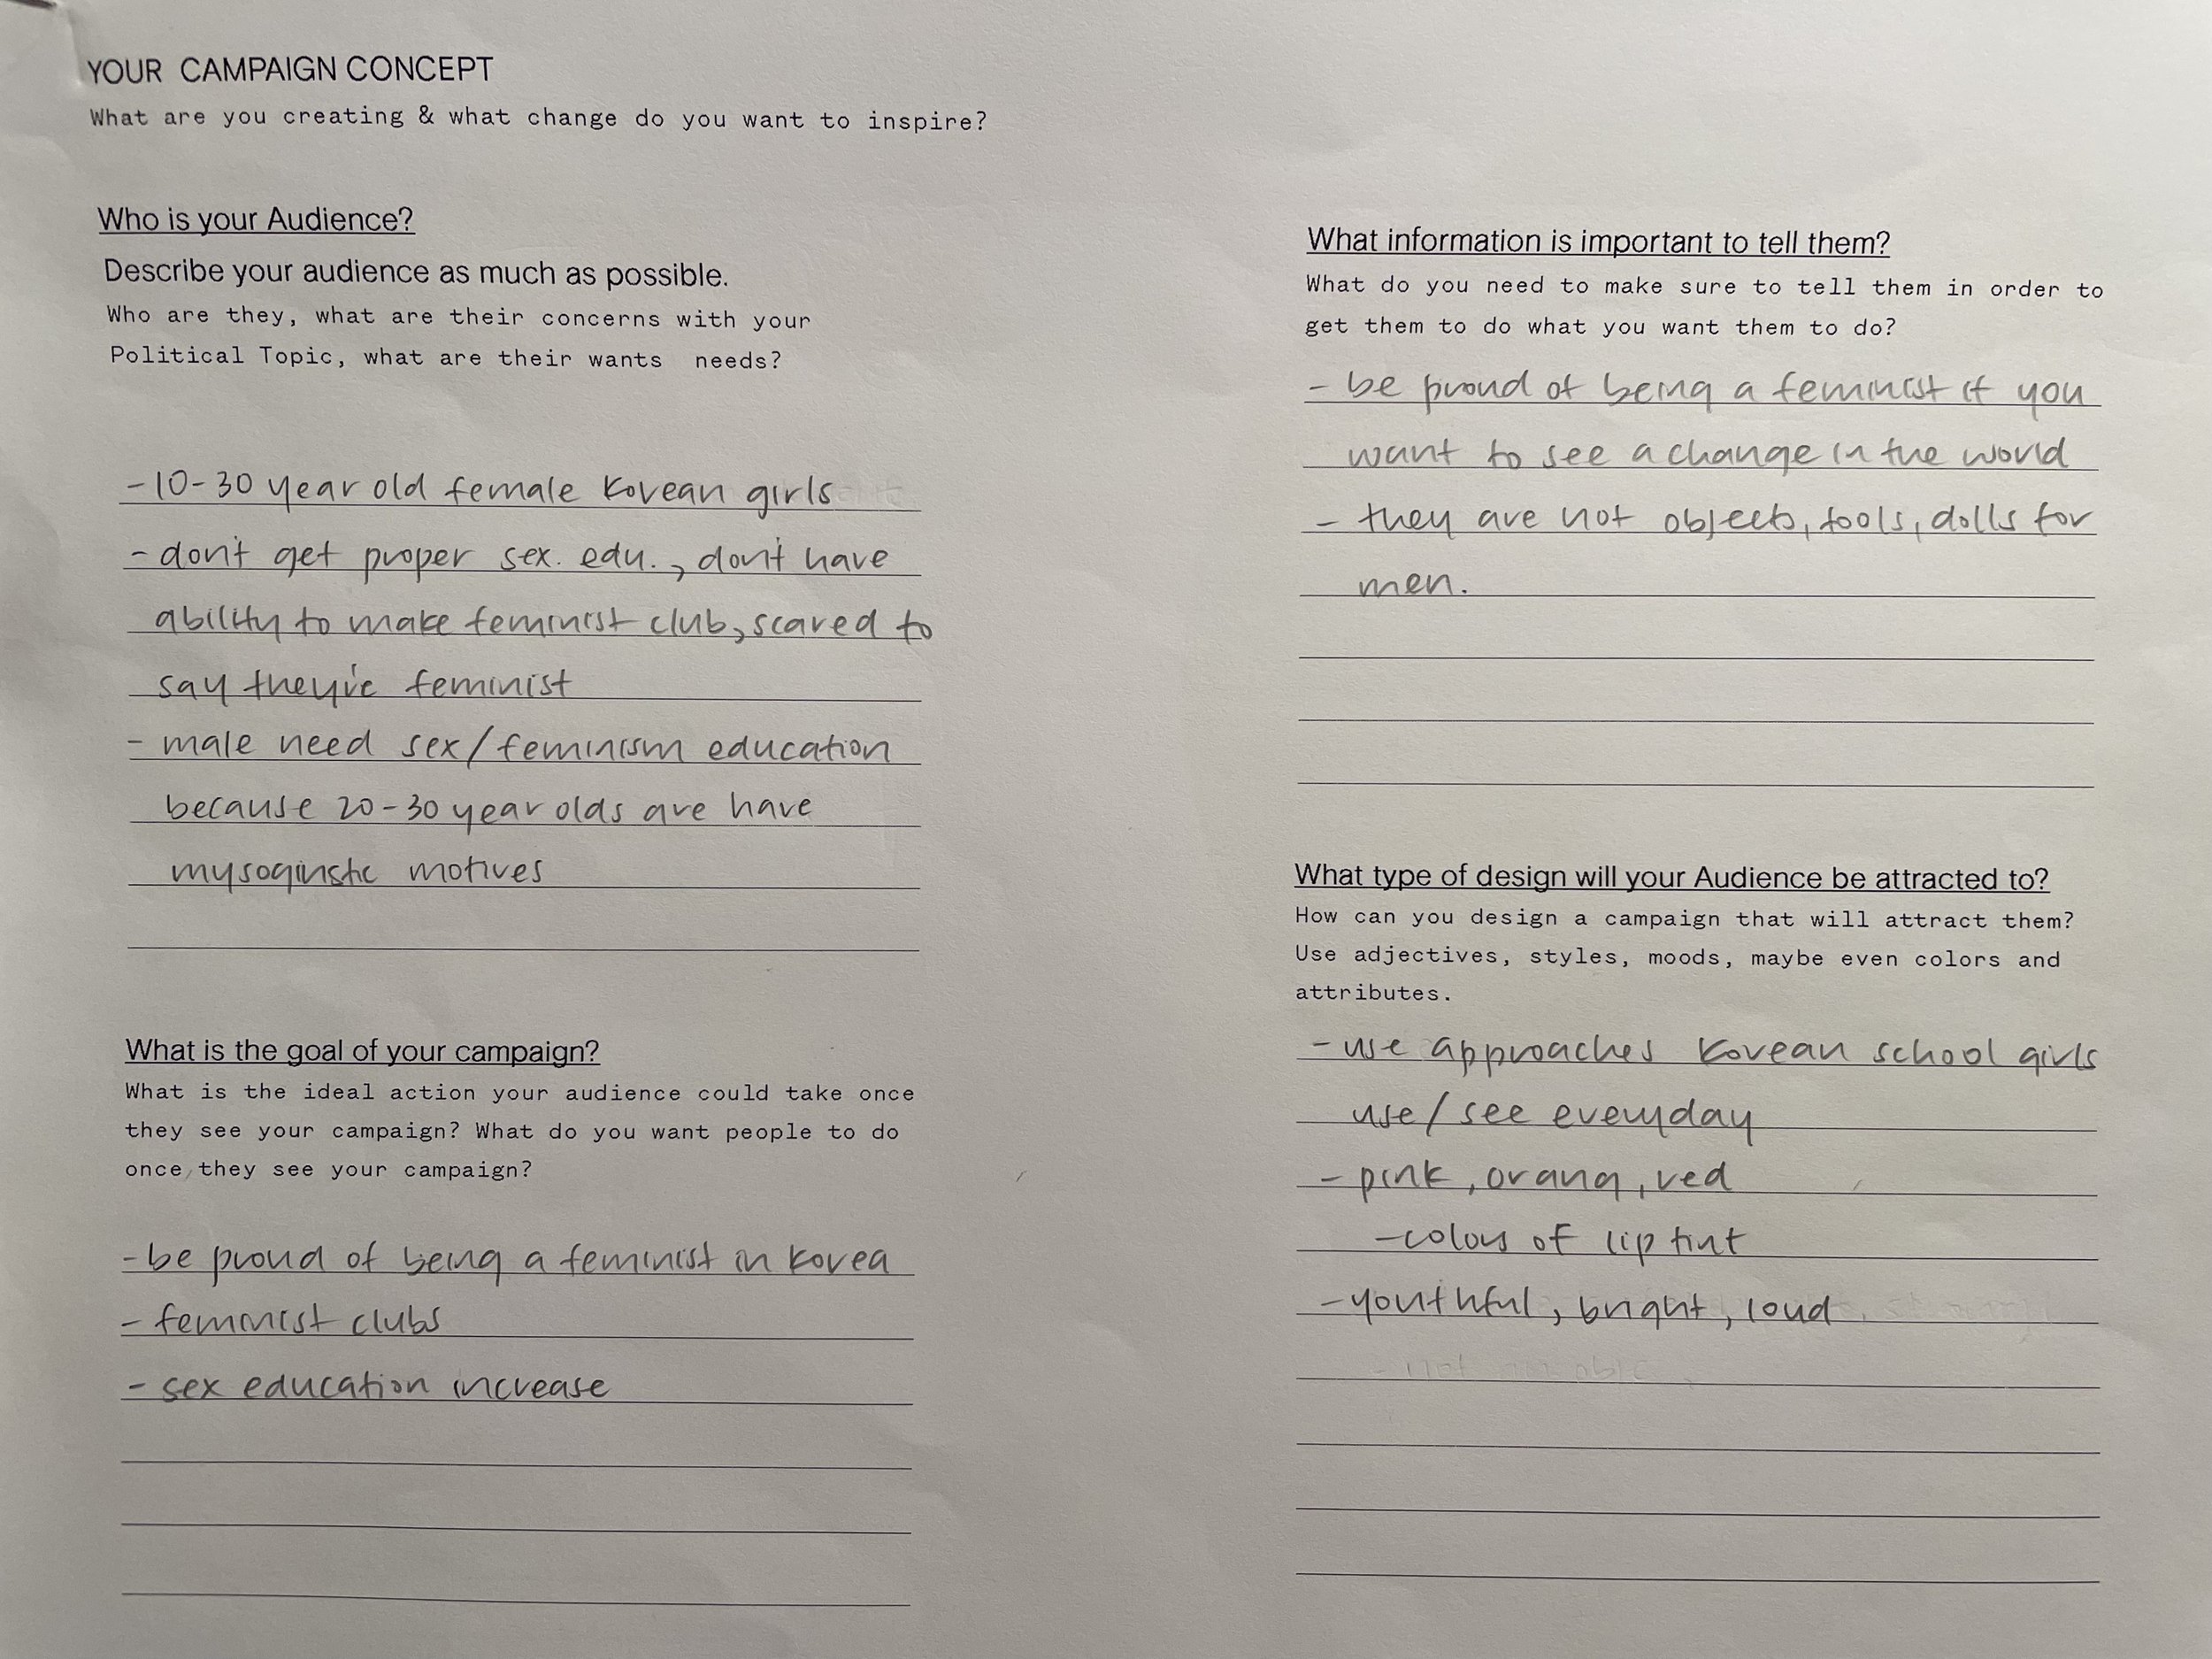 YOUR CAMPAIGN CONCEPT
What are you creating & what change do you want to inspire?
Who is your Audience?
Describe your audience as much as possible.
Who are they, what are their concerns with your
Political Topic, what are their wants needs?
- 10-30 year old female Korean girls
- don't get proper sex. edu., don't have
ability to make feminist club, scared to
say they're feminist
- male need sex/feminism education
because 20-30 year olds are have
mysoginstic motives
What is the goal of your campaign?
What is the ideal action your audience could take once
they see your campaign? What do you want people to do
once they see your campaign?
- be proud of being a feminist in Korea
- feminist clubs
- sex education increase
What information is important to tell them?
What do you need to make sure to tell them in order to
get them to do what you want them to do?
- be proud of being a feminist if you
want to see a change in the world
- they are not objects, tools, dolls for
men.
What type of design will your Audience be attracted to?
How can you design a campaign that will attract them?
Use adjectives, styles, moods, maybe even colors and
attributes.
- use approaches Korean school girls
use/see everyday
- pink, orang, red
- colors of lip tint
- youthful, bright, loud